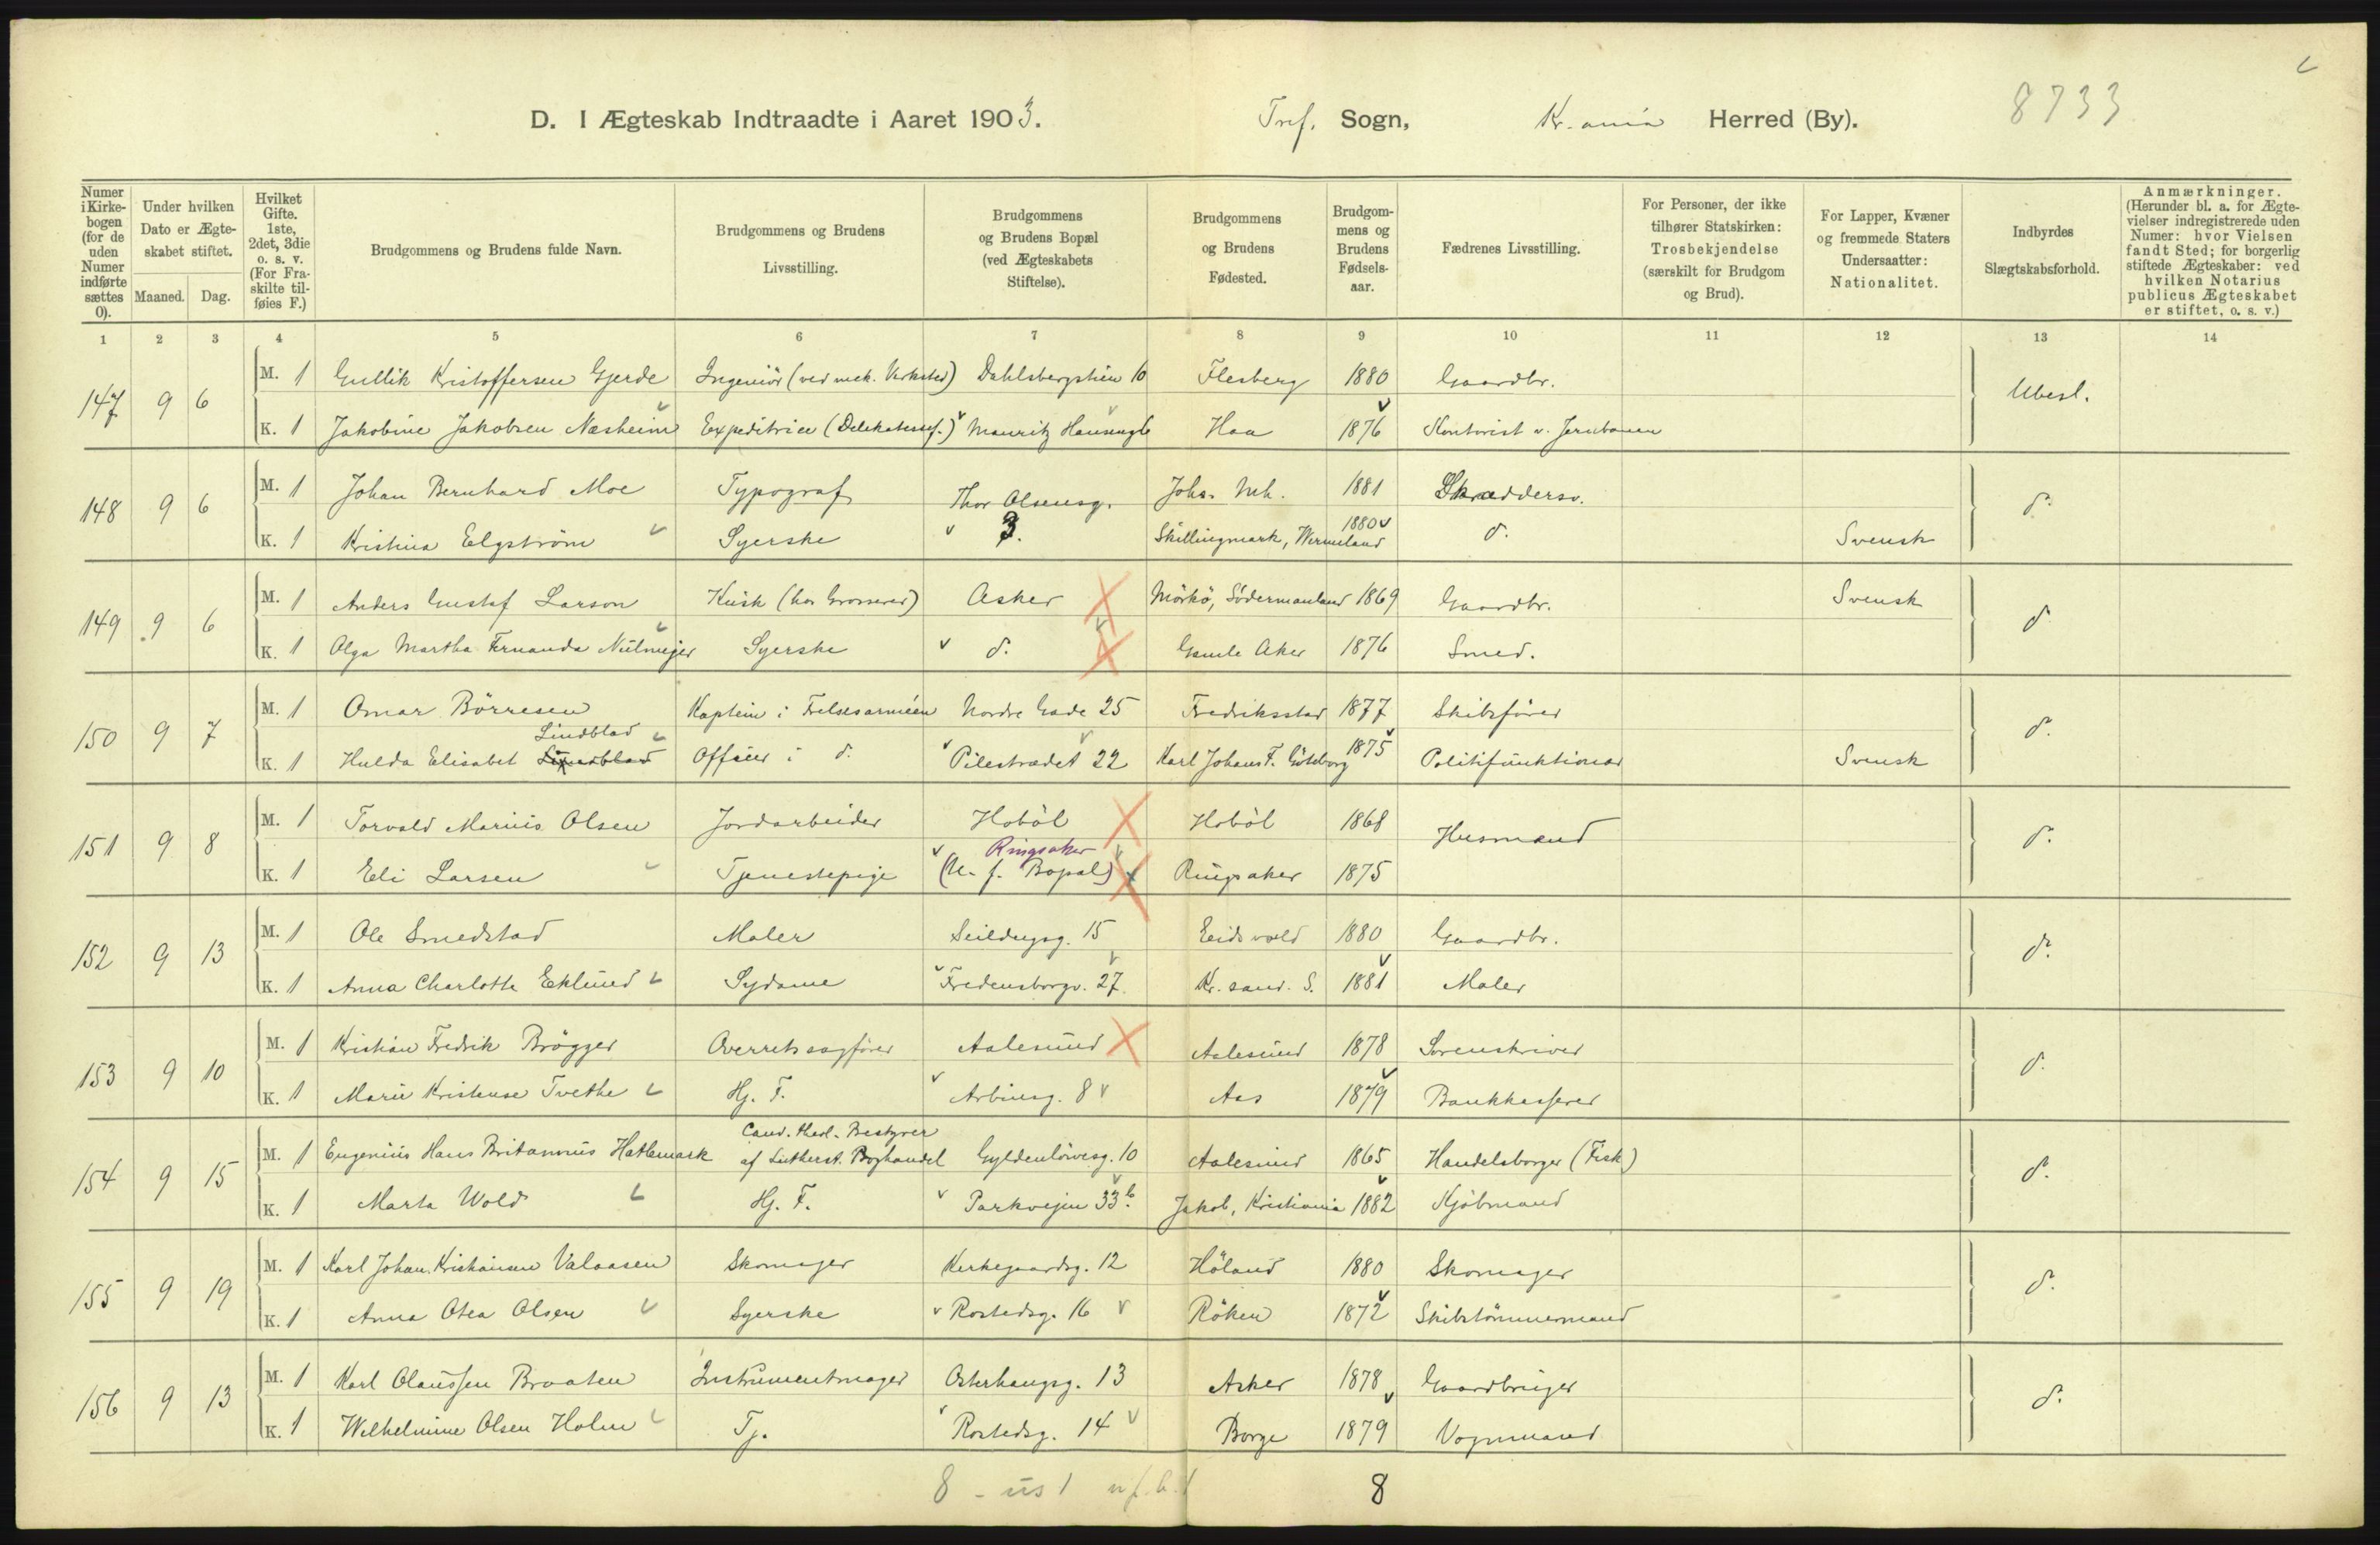 8733
D. I Ægteskab Indtraadte i Aaret 1903. Tref. Sogn, Kr.ania Herred (By).
Numer i Kirke-bogen (for de uden Numer indførte sættes 0).
Under hvilken Dato er Ægte-skabet stiftet.
Maaned. Dag.
Hvilket Gifte. 1ste, 2det, 3die o. s. v. (For Fra-skilte til-føies F.)
Brudgommens og Brudens fulde Navn.
Brudgommens og Brudens Livsstilling.
Brudgommens og Brudens Bopæl (ved Ægteskabets Stiftelse).
Brudgommens og Brudens Fødested.
Brudgom-mens og Brudens Fødsels-aar.
Fædrenes Livsstilling.
For Personer, der ikke tilhører Statskirken: Trosbekjendelse (særskilt for Brudgom og Brud).
For Lapper, Kvæner og fremmede Staters Undersaatter: Nationalitet.
Indbyrdes Slægtskabsforhold.
Anmærkninger. (Herunder bl. a. for Ægte-vielser indregistrerede uden Numer: hvor Vielsen fandt Sted; for borgerlig stiftede Ægteskaber: ved hvilken Notarius publicus Ægteskabet er stiftet, o. s. v.)
1 2 3 4 5 6 7 8 9 10 11 12 13 14
147 9 6 M. 1 Gullik Kristoffersen Gjerde Ingeniör (ved mek. Verksted) Dahlsbergstien 10 Flesberg 1880 Gaardbr. Ubesl.
K. 1 Jakobine Jakobsen Næsheim Expeditrice (Delikatessef.) Mauritz Hansensg 6 Haa 1876 Kontorist v. Jernbanen
148 9 6 M. 1 Johan Bernhard Moe Typograf Thor Olsensg. Johs. Mh. 1881 Skræddersv. d.
K. 1 Kristina Elgström Syerske 3. Skillingmark, Wermland 1880 d. Svensk
149 9 6 M. 1 Anders Gustaf Larson Kusk (hos Grosserer) Asker Mörkö, Södermanland 1869 Gaardbr. Svensk d.
K. 1 Olga Martha Fernanda Nülmeyer Syerske d. Gamle Aker 1876 Smed.
150 9 7 M. 1 Omar Börresen Kaptein i Frelsesarmeen Nordre Gade 25 Fredriksstad 1877 Skibsförer d.
Lindblad
K. 1 Hulda Elisabet Officer i d. Pilestrædet 22 Karl Johans F. Göteborg 1875 Politifunktionær Svensk
151 9 8 M. 1 Torvald Marius Olsen Jordarbeider Hoböl Hoböl 1868 Husmand d.
Ringsaker
K. 1 Eli Larsen Tjenestepige (U. f. Bopæl) Ringsaker 1875
152 9 13 M. 1 Ole Smedstad Maler Seildugsg. 15 Eidsvold 1880 Gaardbr. d.
K. 1 Anna Charlotte Eklund Sydame Fredensborgv. 27 Kr.sand. S. 1881 Maler
153 9 10 M. 1 Kristian Fredrik Brögger Overretssagförer Aalesund Aalesund 1878 Sorenskriver d.
K. 1 Marie Kristense Tvethe Hj. F. Arbinsg. 8 Aas 1879 Bankkasserer
154 9 15 M. 1 Eugenius Hans Britannus Hatlemark Cand. theol. Bestyrer
af Lutherst. Boghandel Gyldenlövesg. 10 Aalesund 1865 Handelsborger (Fisk) d.
K. 1 Marta Wold Hj. F. Parkvejen 33 b. Jakob, Kristiania 1882 Kjöbmand
155 9 19 M. 1 Karl Johan Kristiansen Valaasen Skomager Kirkegaardsg. 12 Höland 1880 Skomager d.
K. 1 Anna Otea Olsen Syerske Rostedsg. 16 Röken 1872 Skibstömmermand
156 9 13 M. 1 Karl Olaussen Braaten Instrumentmager Osterhausg. 13 Asker 1878 Gaardbruger d.
K. 1 Wilhelmine Olsen Holm Tj. Rostedsg. 14 Borge 1879 Vognmand
8 - us 1 u.f.b. 1 8